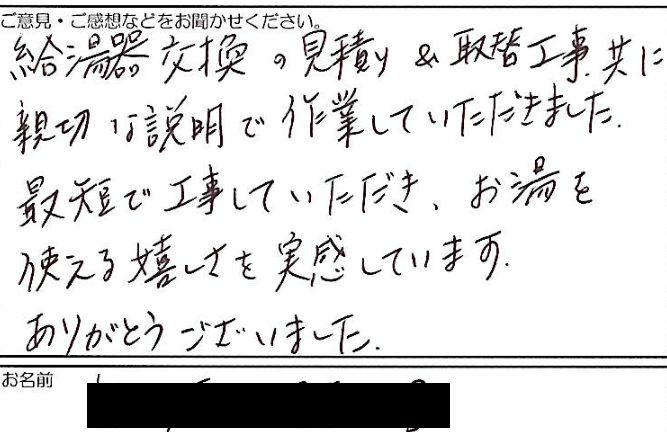 ご意見・ご感想などをお聞かせください。
給湯器交換の見積り & 取替工事共に
親切な説明で作業していただきました.
最短で工事していただき、お湯を
使える嬉しさを実感しています.
ありがとうございました.
お名前